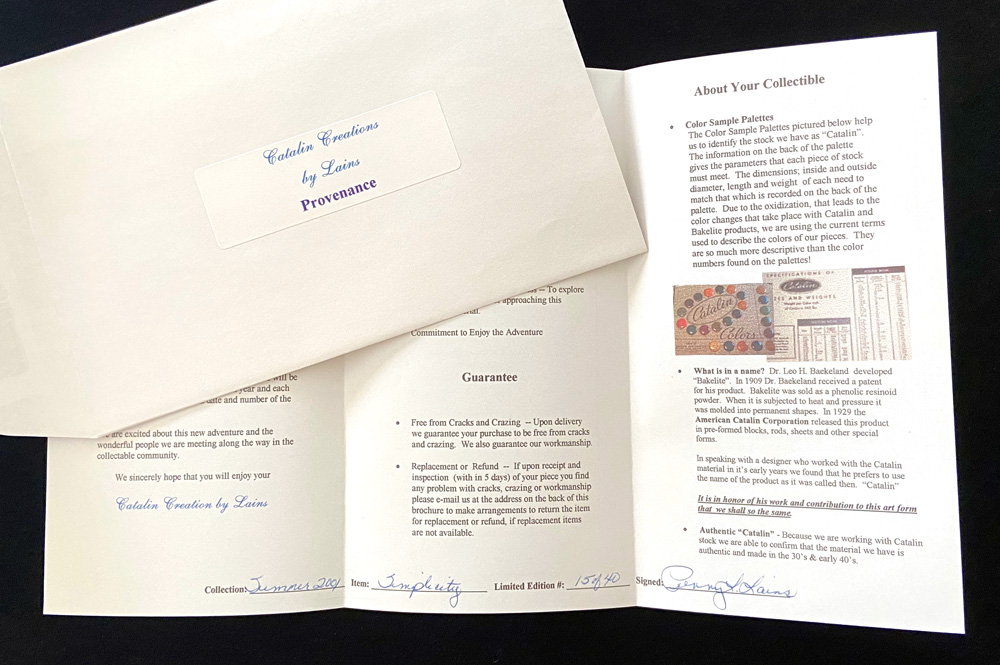 Catalin Creations
by Lains
Provenance
will be
year and each
date and number of the
are excited about this new adventure and the
wonderful people we are meeting along the way in the
collectable community.
We sincerely hope that you will enjoy your
Catalin Creation by Lains
-- To explore
approaching this
Commitment to Enjoy the Adventure
Guarantee
• Free from Cracks and Crazing -- Upon delivery
we guarantee your purchase to be free from cracks
and crazing. We also guarantee our workmanship.
• Replacement or Refund -- If upon receipt and
inspection (with in 5 days) of your piece you find
any problem with cracks, crazing or workmanship
please e-mail us at the address on the back of this
brochure to make arrangements to return the item
for replacement or refund, if replacement items
are not available.
About Your Collectible
• Color Sample Palettes
The Color Sample Palettes pictured below help
us to identify the stock we have as “Catalin”.
The information on the back of the palette
gives the parameters that each piece of stock
must meet. The dimensions; inside and outside
diameter, length and weight of each need to
match that which is recorded on the back of the
palette. Due to the oxidization, that leads to the
color changes that take place with Catalin and
Bakelite products, we are using the current terms
used to describe the colors of our pieces. They
are so much more descriptive than the color
numbers found on the palettes!
Catalin
Colors
SPECIFICATIONS OF
Catalin
AND WEIGHTS
• What is in a name? Dr. Leo H. Baekeland developed
“Bakelite”. In 1909 Dr. Baekeland received a patent
for his product. Bakelite was sold as a phenolic resinoid
powder. When it is subjected to heat and pressure it
was molded into permanent shapes. In 1929 the
American Catalin Corporation released this product
in pre-formed blocks, rods, sheets and other special
forms.
In speaking with a designer who worked with the Catalin
material in it’s early years we found that he prefers to use
the name of the product as it was called then. “Catalin”
It is in honor of his work and contribution to this art form
that we shall so the same.
• Authentic “Catalin” - Because we are working with Catalin
stock we are able to confirm that the material we have is
authentic and made in the 30’s & early 40’s.
Collection: Summer 2001 Item: Simplicity Limited Edition #: 15 of 40 Signed: Penny S. Lains